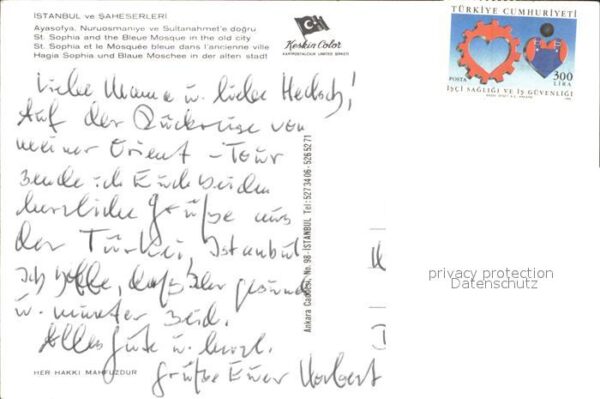 İSTANBUL ve ŞAHESERLERİ
Ayasofya, Nuruosmaniye ve Sultanahmet'e doğru
St. Sophia and the Bleue Mosque in the old city
St. Sophia et le Mosquée bleue dans l'ancienne ville
Hagia Sophia und Blaue Moschee in der alten stadt
Keskin Color
KARTPOSTALCILIK LIMITED ŞİRKETİ
TÜRKİYE CUMHURİYETİ
POSTA 300 LİRA
İŞÇİ SAĞLIĞI VE İŞ GÜVENLİĞİ
Liebe Mama u. liebe
Auf der Rückreise von
meiner Orient-Tour
sende ich Euch beiden
herzliche Grüße aus
der Türkei, Istanbul
Ich hoffe, daß Ihr gesund
u. munter seid.
Alles Gute u. herzl.
Grüße Euer Norbert
Ankara Caddesi, No. 98 - İSTANBUL Tel: 5273406 - 5265271
privacy protection
Datenschutz
HER HAKKI MAHFUZDUR